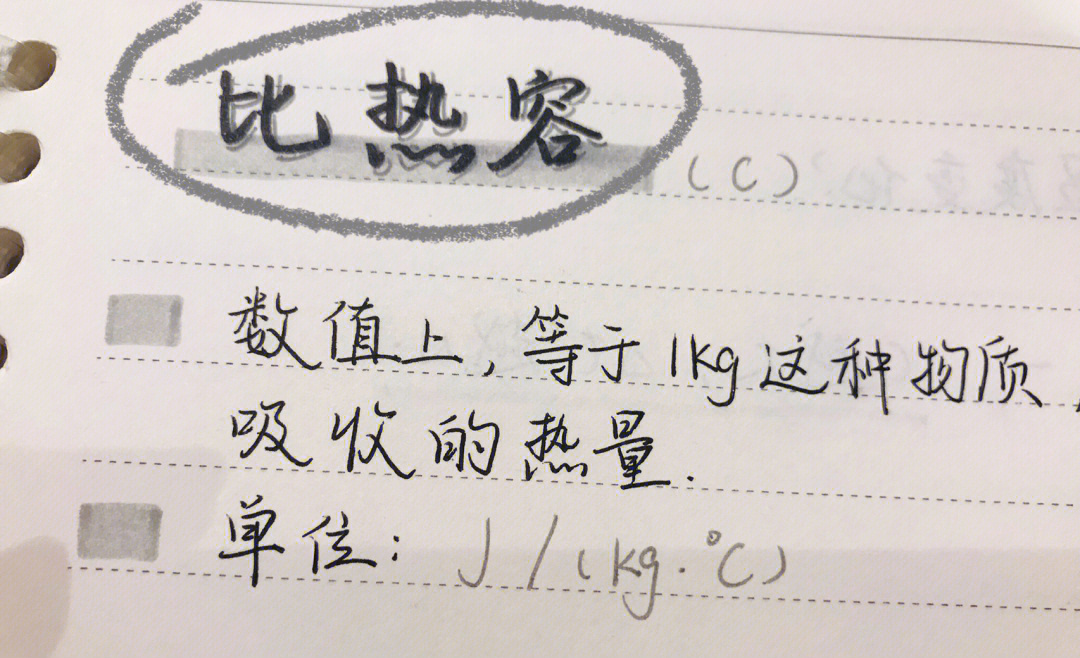 比热容 (C)
数值上,等于1kg这种物质
吸收的热量.
单位: J/(kg·℃)